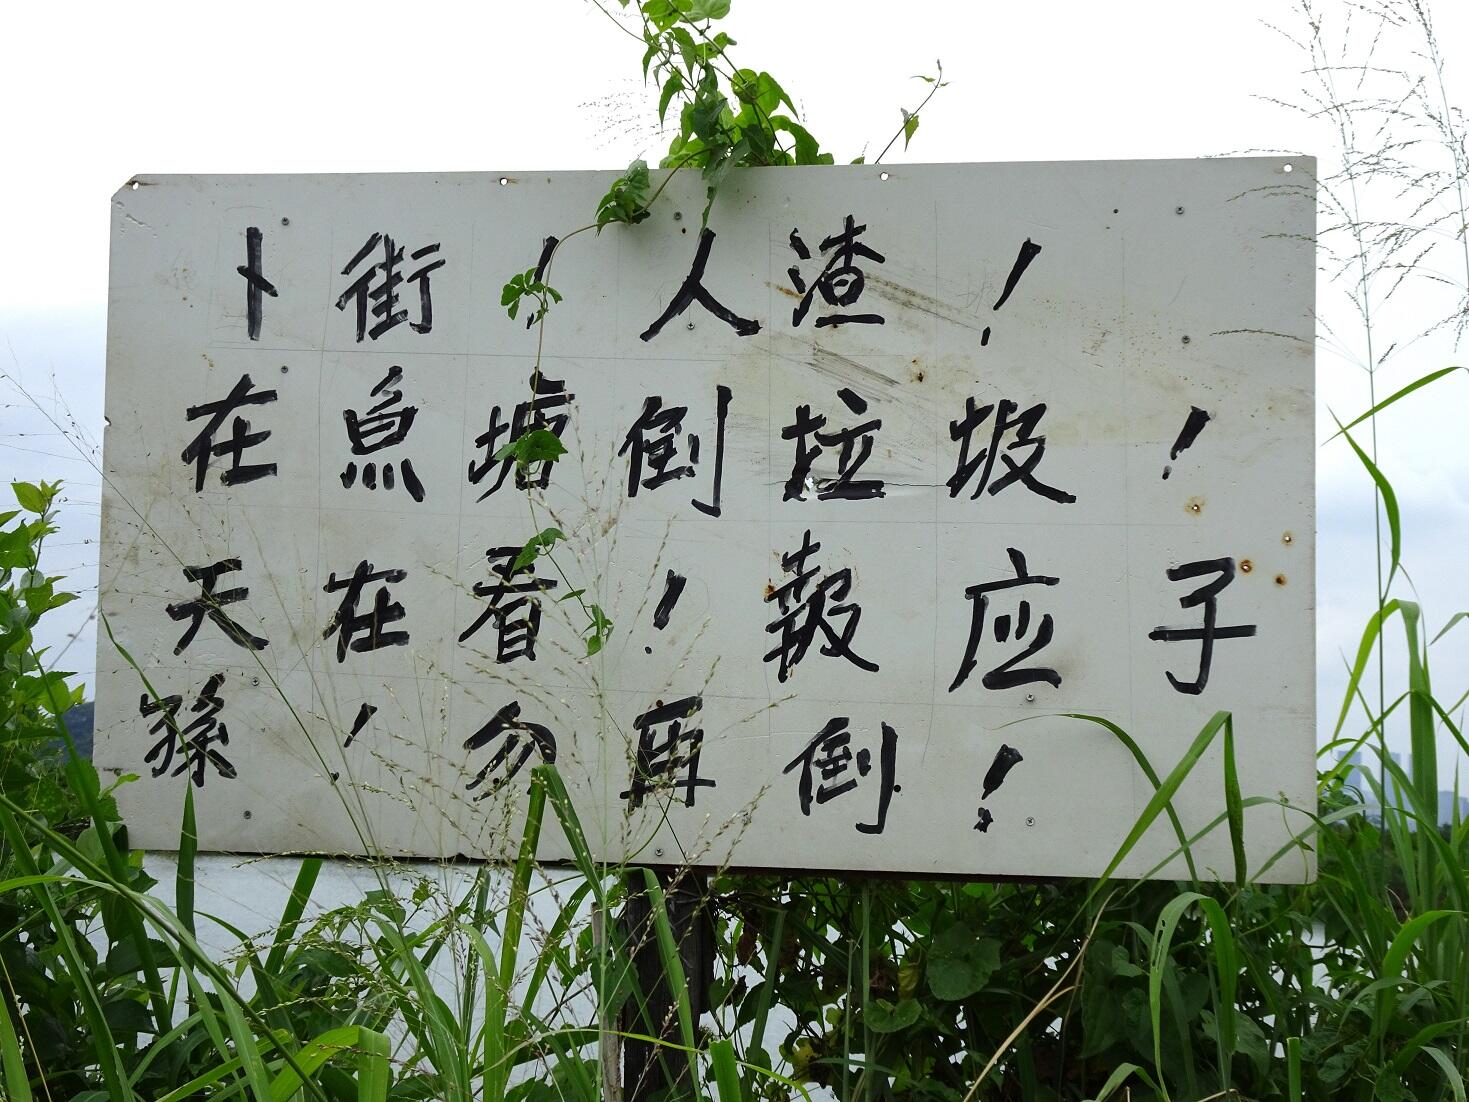 卜街！人渣！
在魚塘倒垃圾！
天在看！報应子
孫！勿再倒！